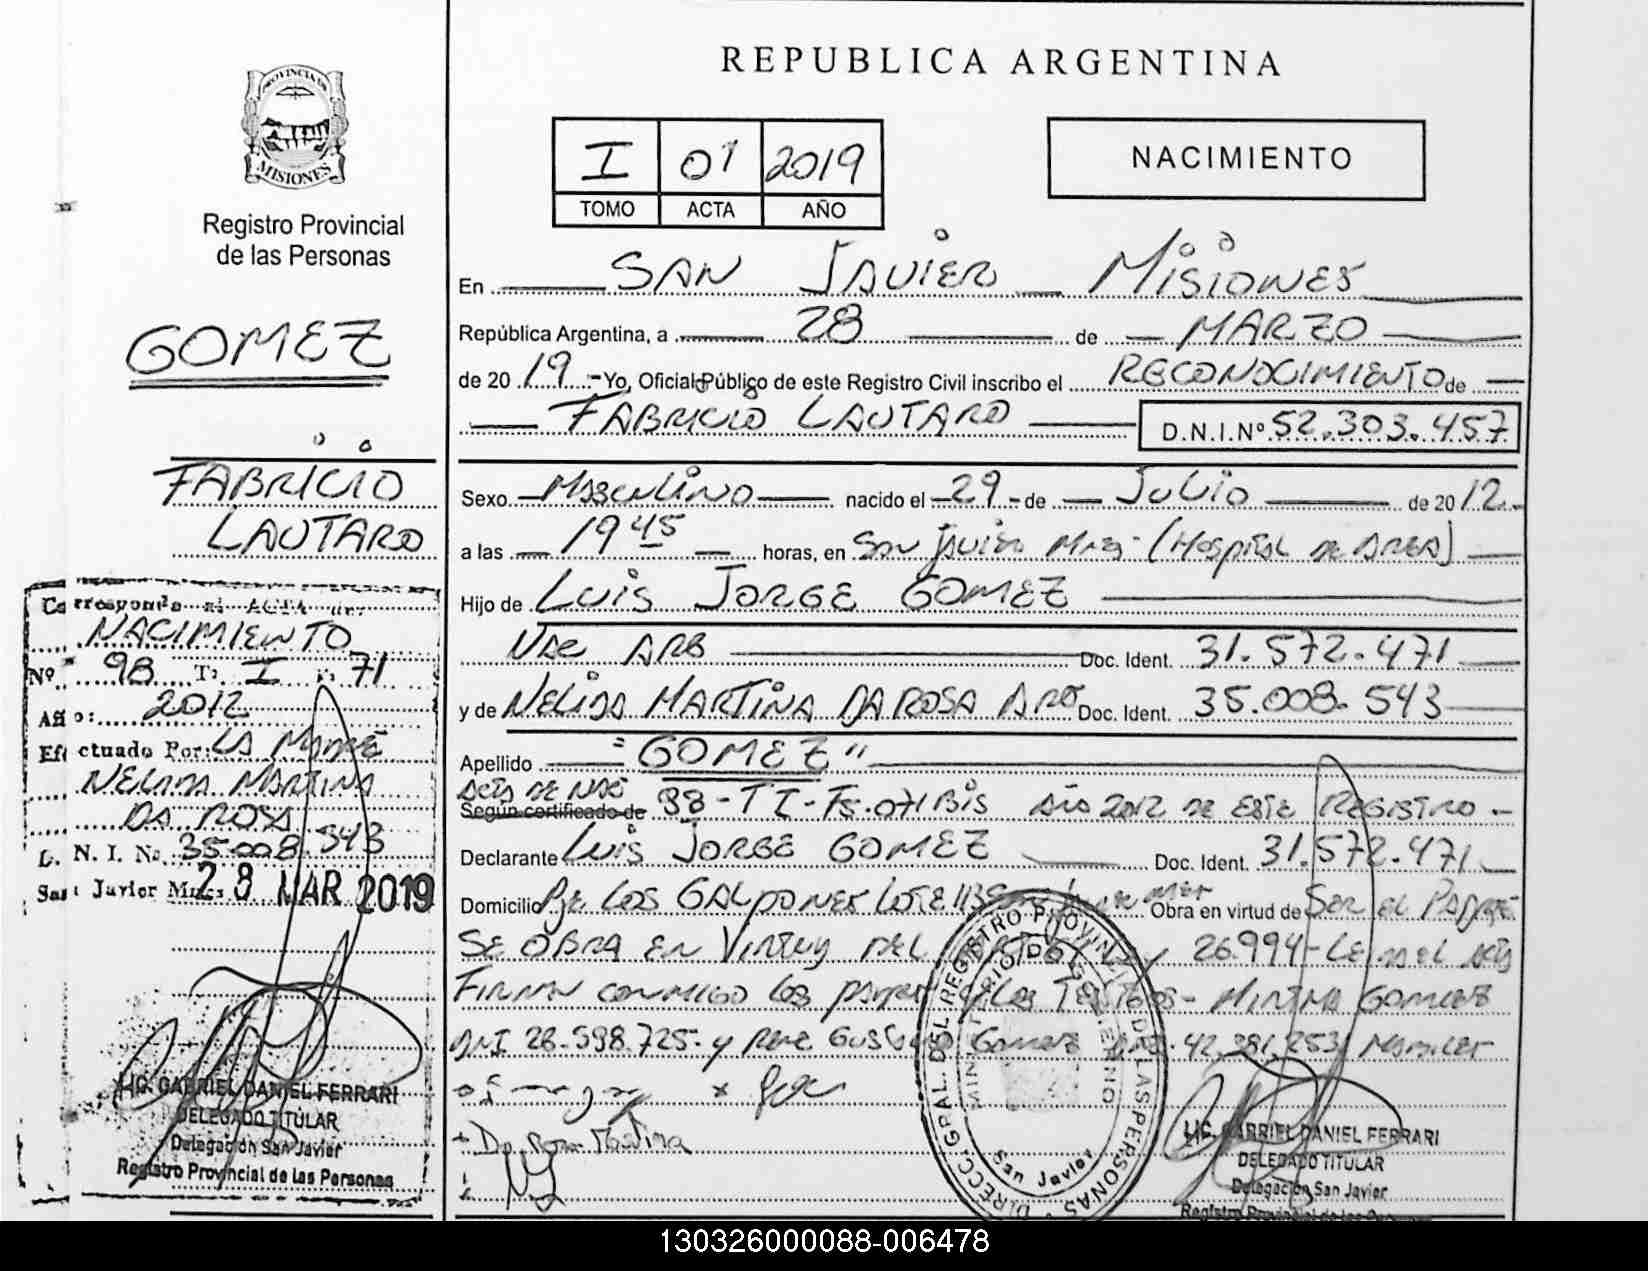 REPUBLICA ARGENTINA
PROVINCIA DE
MISIONES
Registro Provincial
de las Personas
I 01 2019
TOMO ACTA AÑO
NACIMIENTO
GOMEZ
FABRICIO
LAUTARO
En SAN JAVIER MISIONES
República Argentina, a 28 de MARZO
de 2019 - Yo, Oficial Público de este Registro Civil inscribo el RECONOCIMIENTO de
FABRICIO LAUTARO D.N.I.Nº 52.303.457
Sexo MASCULINO nacido el 29 de JULIO de 2012
a las 19 45 horas, en San Javier Mnes. (Hospital de AREA)
Hijo de LUIS JORGE GOMEZ
NAC ARG Doc. Ident. 31.572.471
y de NELIDA MARTINA DA ROSA ARG Doc. Ident. 35.008.543
Apellido "GOMEZ"
ACTA DE NAC
Según certificado de 98-TI-Fs.071Bis Año 2012 DE ESTE REGISTRO -
Declarante LUIS JORGE GOMEZ Doc. Ident. 31.572.471
Domicilio LOS GALPONES LOTE 113 Obra en virtud de SER EL PADRE
SE OBRA EN VIRTUD DEL 26.994 - LEIDA EL ACTA
FIRMAN CONMIGO LOS PADRES y LOS TESTIGOS - MIRTHA GOMEZ
DNI 26.598.725 - y RENE Gustavo Gomez 42.391.253
Da Rosa Martina
Corresponde al ACTA de:
NACIMIENTO
Nº 98 T: I F: 71
Año: 2012
Efectuado Por: LA MADRE
NELIDA MARTINA
DA ROSA
D. N. I. No 35.008.543
San Javier Mnes. 28 MAR 2019
LIC. GABRIEL DANIEL FERRARI
DELEGADO TITULAR
Delegación San Javier
Registro Provincial de las Personas
DIRECC. GRAL. DEL REGISTRO PROVINCIAL DE LAS PERSONAS
MINISTERIO DE GOBIERNO
San Javier
LIC. GABRIEL DANIEL FERRARI
DELEGADO TITULAR
Delegación San Javier
Registro Provincial de las Personas
130326000088-006478